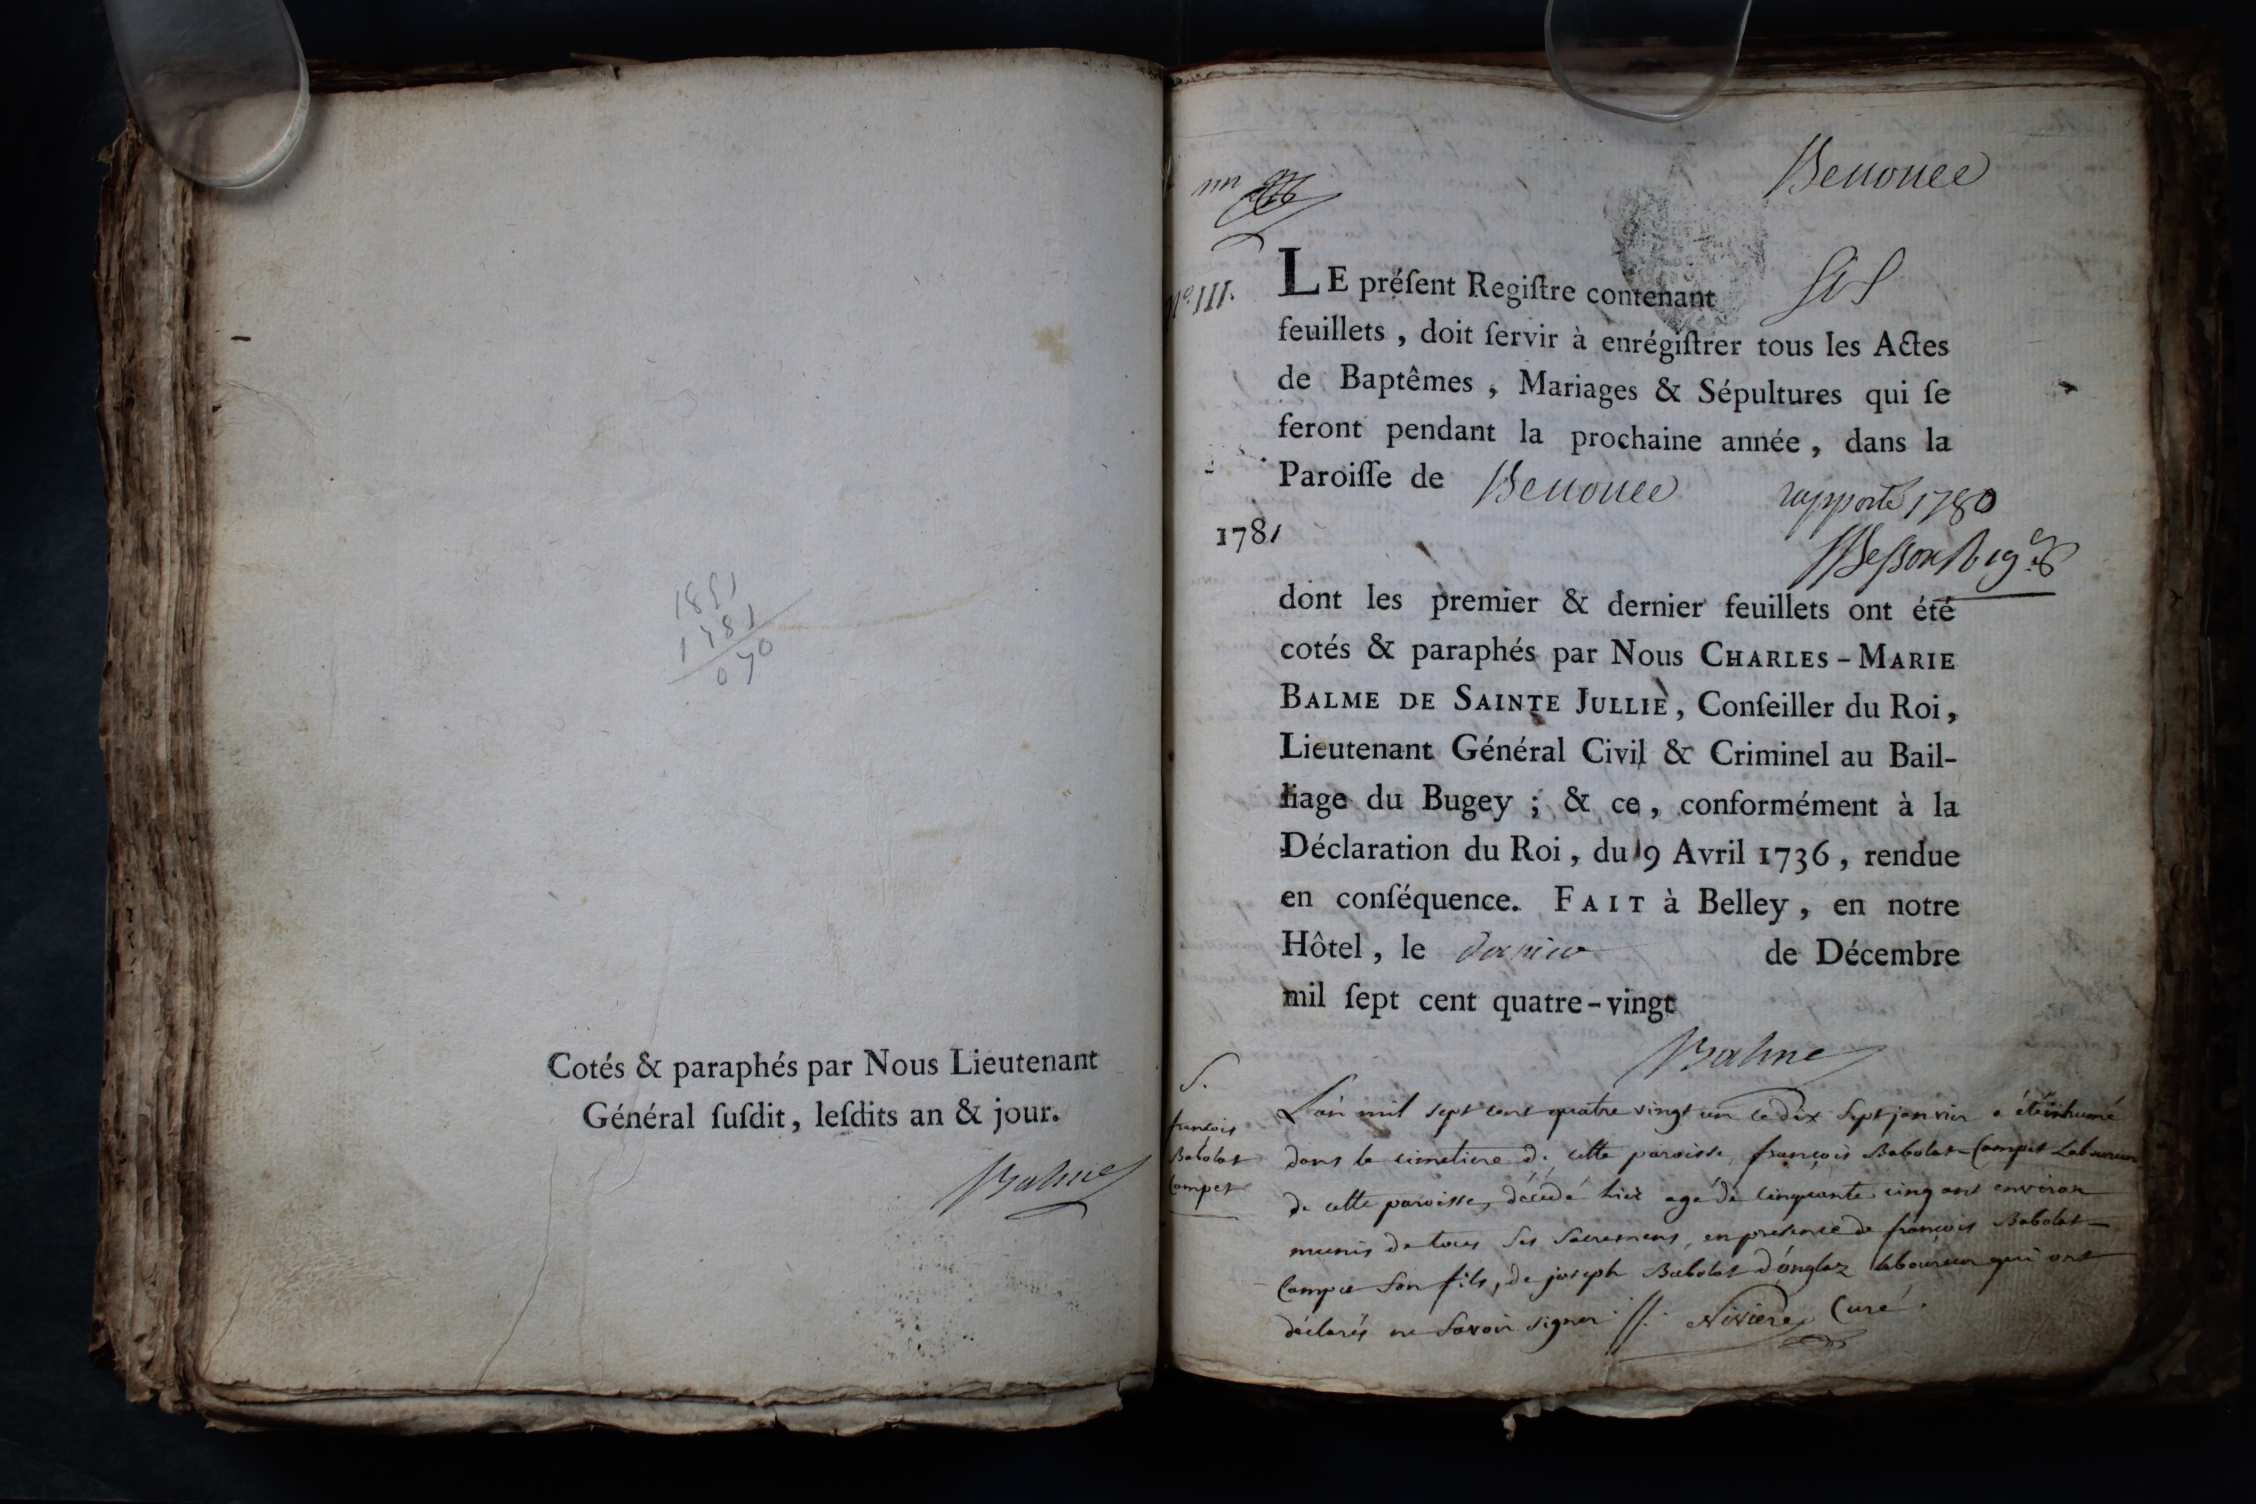 1851
1781
070
Cotés & paraphés par Nous Lieutenant
Général ſuſdit, leſdits an & jour.
Balme
Benonce
N.º III.
LE préſent Regiſtre contenant six
feuillets, doit ſervir à enrégiſtrer tous les Actes
de Baptêmes, Mariages & Sépultures qui ſe
feront pendant la prochaine année, dans la
Paroiſſe de Benonce rapporté 1780
1781
dont les premier & dernier feuillets ont été
cotés & paraphés par Nous CHARLES-MARIE
BALME DE SAINTE JULLIE, Conſeiller du Roi,
Lieutenant Général Civil & Criminel au Bail-
liage du Bugey ; & ce, conformément à la
Déclaration du Roi, du 9 Avril 1736, rendue
en conſéquence. FAIT à Belley, en notre
Hôtel, le dernier de Décembre
mil ſept cent quatre-vingt
Balme
S.
francois
Babolat
Campet
L'an mil sept cent quatre vingt un ce dix sept janvier a été inhumé
dans le cimetiere de cette paroisse, françois Babolat-Campet Laboureur
de cette paroisse, décédé hier agé de cinquante cinq ans environ
munis de tous ses sacremens, en presence de françois Babolat-
Campet son fils, de joseph Babolat d'onglaz laboureur qui ont
déclarés ne savoir signer. Nivière Curé.